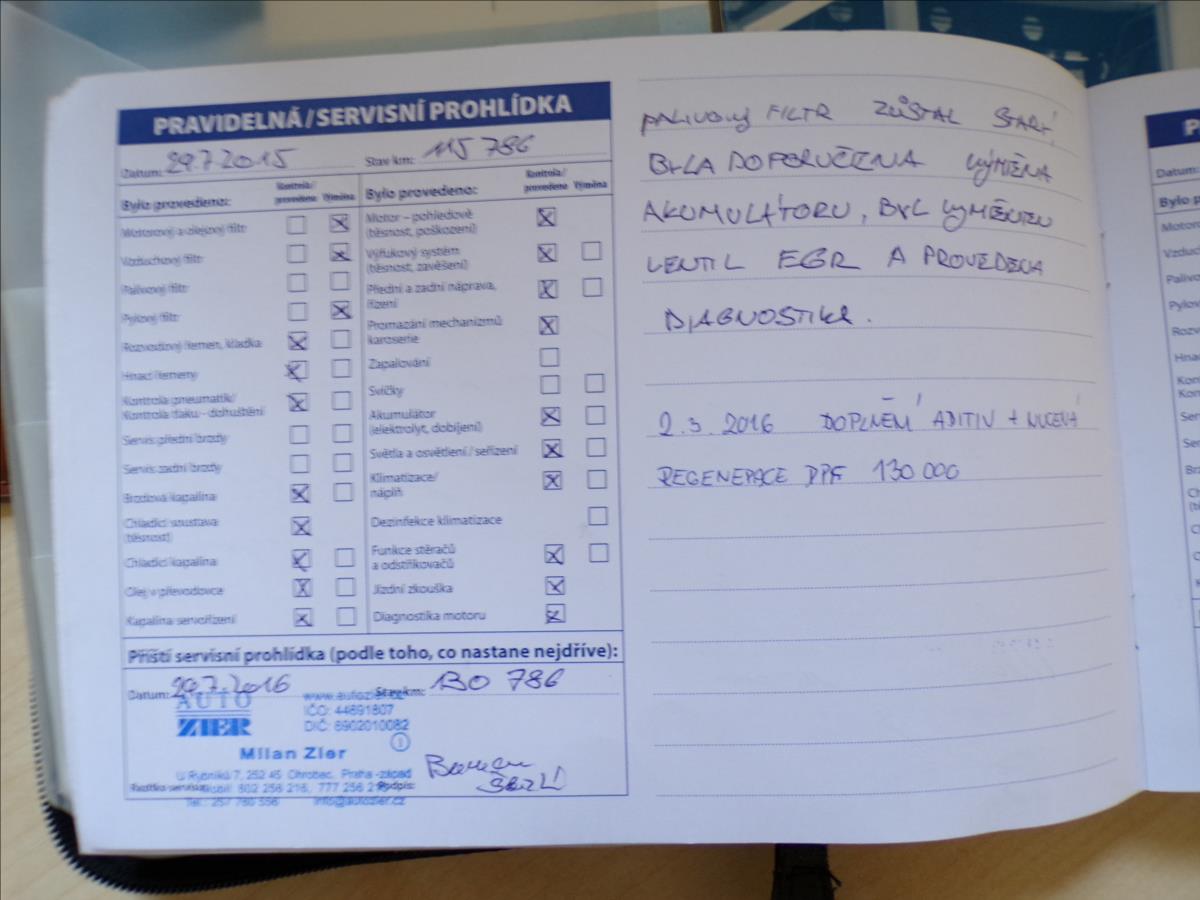 PRAVIDELNÁ/SERVISNÍ PROHLÍDKA
Datum: 29.7.2015 Stav km: 115 786
Bylo provedeno: Kontrola/provedeno Výměna
Motorový a olejový filtr
Vzduchový filtr
Palivový filtr
Pylový filtr
Rozvodový řemen, kladka
Hnací řemeny
Kontrola pneumatik/
Kontrola tlaku - dohuštění
Servis přední brzdy
Servis zadní brzdy
Brzdová kapalina
Chladící soustava
(těsnost)
Chladící kapalina
Olej v převodovce
Kapalina servořízení
Bylo provedeno: Kontrola/provedeno Výměna
Motor – pohledově
(těsnost, poškození)
Výfukový systém
(těsnost, zavěšení)
Přední a zadní náprava,
řízení
Promazání mechanizmů
karoserie
Zapalování
Svíčky
Akumulátor
(elektrolyt, dobíjení)
Světla a osvětlení / seřízení
Klimatizace/
náplň
Dezinfekce klimatizace
Funkce stěračů
a odstřikovačů
Jízdní zkouška
Diagnostika motoru
Příští servisní prohlídka (podle toho, co nastane nejdříve):
Datum: 29.7.2016 Stav km: 130 786
AUTO
ZIER
www.autozier.cz
IČO: 44691807
DIČ: 6902010082
Milan Zier
U Rybníků 7, 252 45 Ohrobec, Praha -západ
Razítko servisu: Mobil: 602 256 216, 777 256 Podpis:
Tel.: 257 760 556 info@autozier.cz
PALIVOVÝ FILTR ZŮSTAL STARÝ,
BYLA DOPORUČENA VÝMĚNA
AKUMULÁTORU, BYL VYMĚNĚN
VENTIL EGR A PROVEDENA
DIAGNOSTIKA.
2.3.2016 DOPLNĚNÍ ADITIV + NUCENÁ
REGENERACE DPF 130 000
P
Datum:
Bylo p
Motoro
Vzduc
Palivo
Pylov
Rozv
Hnac
Kon
Kon
Ser
Ser